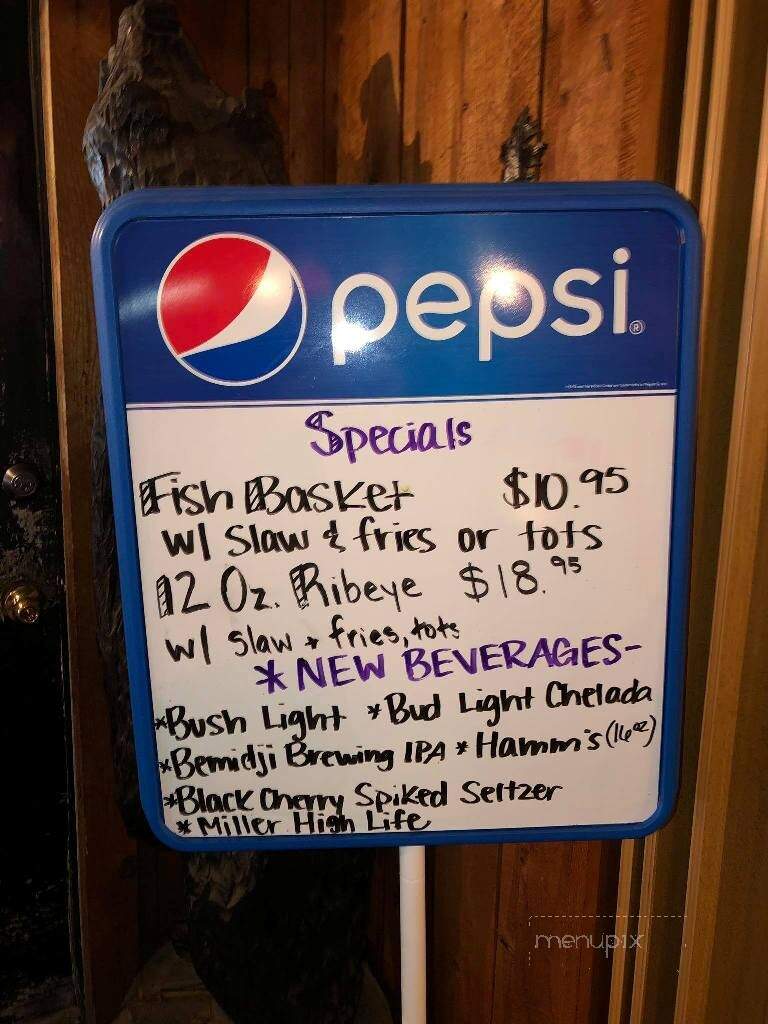 pepsi®
Specials
Fish Basket $10.95
w/ Slaw & fries or tots
12 Oz. Ribeye $18.95
w/ slaw + fries, tots
* NEW BEVERAGES-
*Bush Light *Bud Light Chelada
*Bemidji Brewing IPA * Hamm's (16oz)
*Black Cherry Spiked Seltzer
* Miller High Life
menupix